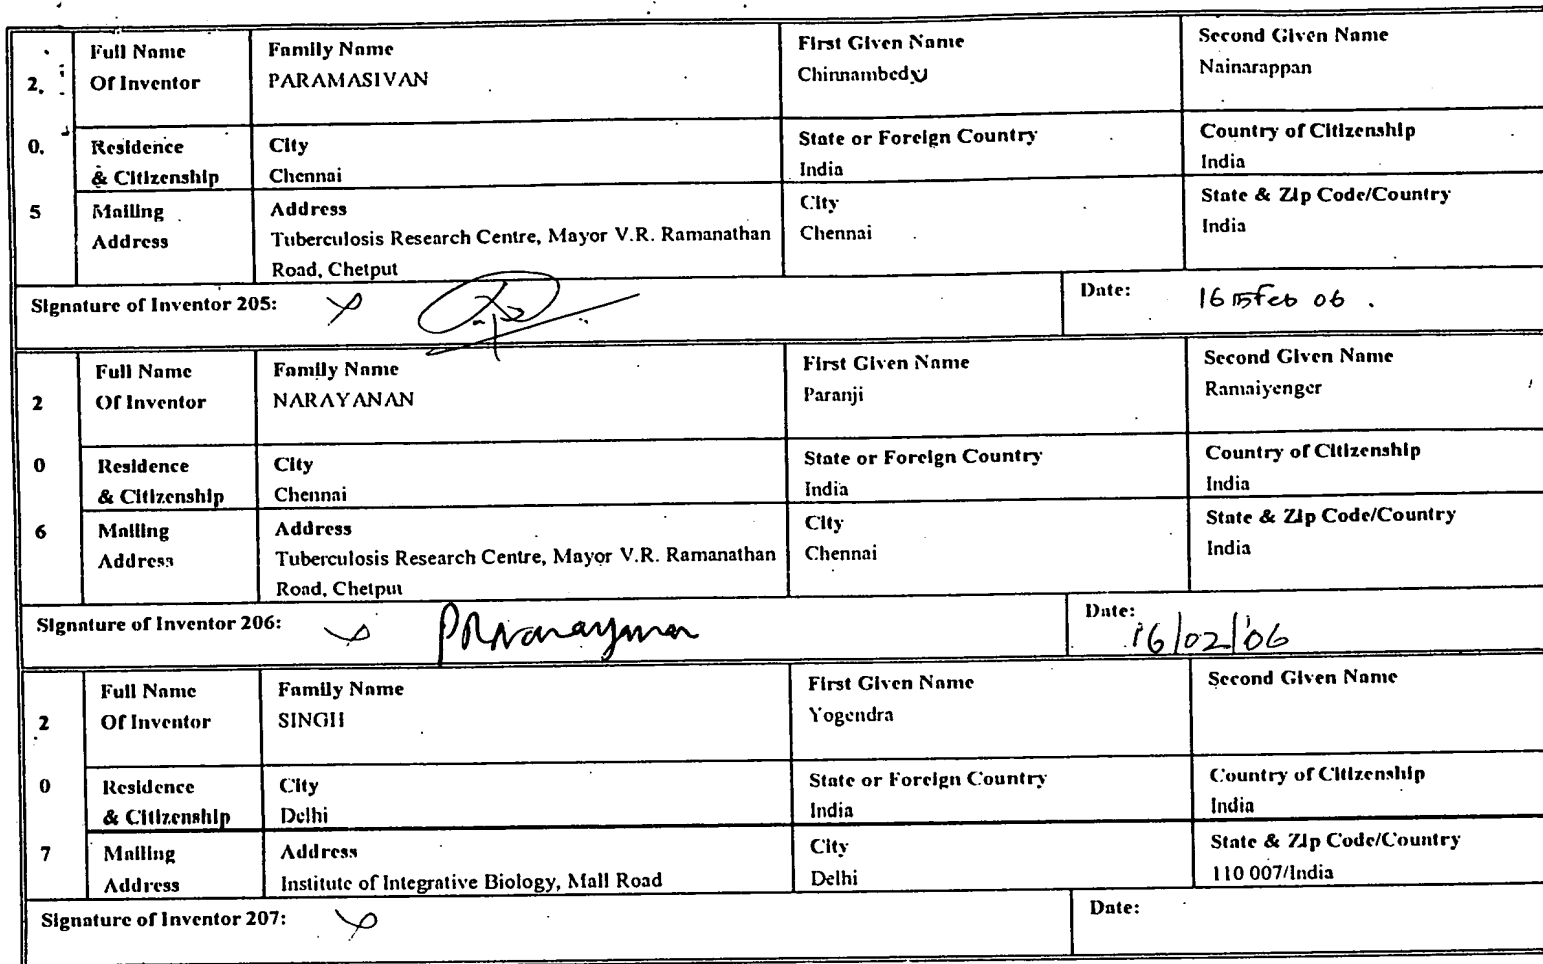 2. Full Name Of Inventor Family Name PARAMASIVAN First Given Name Chinnambedu Second Given Name Nainarappan
0. Residence & Citizenship City Chennai State or Foreign Country India Country of Citizenship India
5 Mailing Address Address Tuberculosis Research Centre, Mayor V.R. Ramanathan Road, Chetput City Chennai State & Zip Code/Country India
Signature of Inventor 205: Date: 16 Feb 06.
2 Full Name Of Inventor Family Name NARAYANAN First Given Name Paranji Second Given Name Ramaiyenger
0 Residence & Citizenship City Chennai State or Foreign Country India Country of Citizenship India
6 Mailing Address Address Tuberculosis Research Centre, Mayor V.R. Ramanathan Road, Chetput City Chennai State & Zip Code/Country India
Signature of Inventor 206: PRNarayanan Date: 16/02/'06
2 Full Name Of Inventor Family Name SINGH First Given Name Yogendra Second Given Name
0 Residence & Citizenship City Delhi State or Foreign Country India Country of Citizenship India
7 Mailing Address Address Institute of Integrative Biology, Mall Road City Delhi State & Zip Code/Country 110 007/India
Signature of Inventor 207: Date: